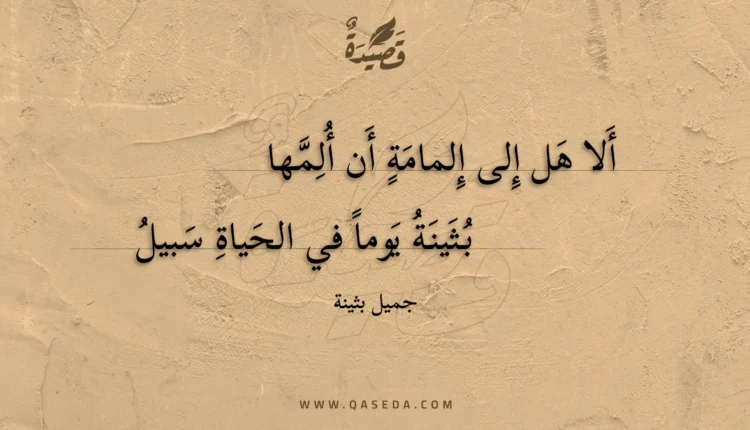 قَصِيدَةٌ
أَلا هَل إِلى إِلمامَةٍ أَن أُلِمَّها
بُثَينَةُ يَوماً في الحَياةِ سَبيلُ
جميل بثينة
WWW.QASEDA.COM